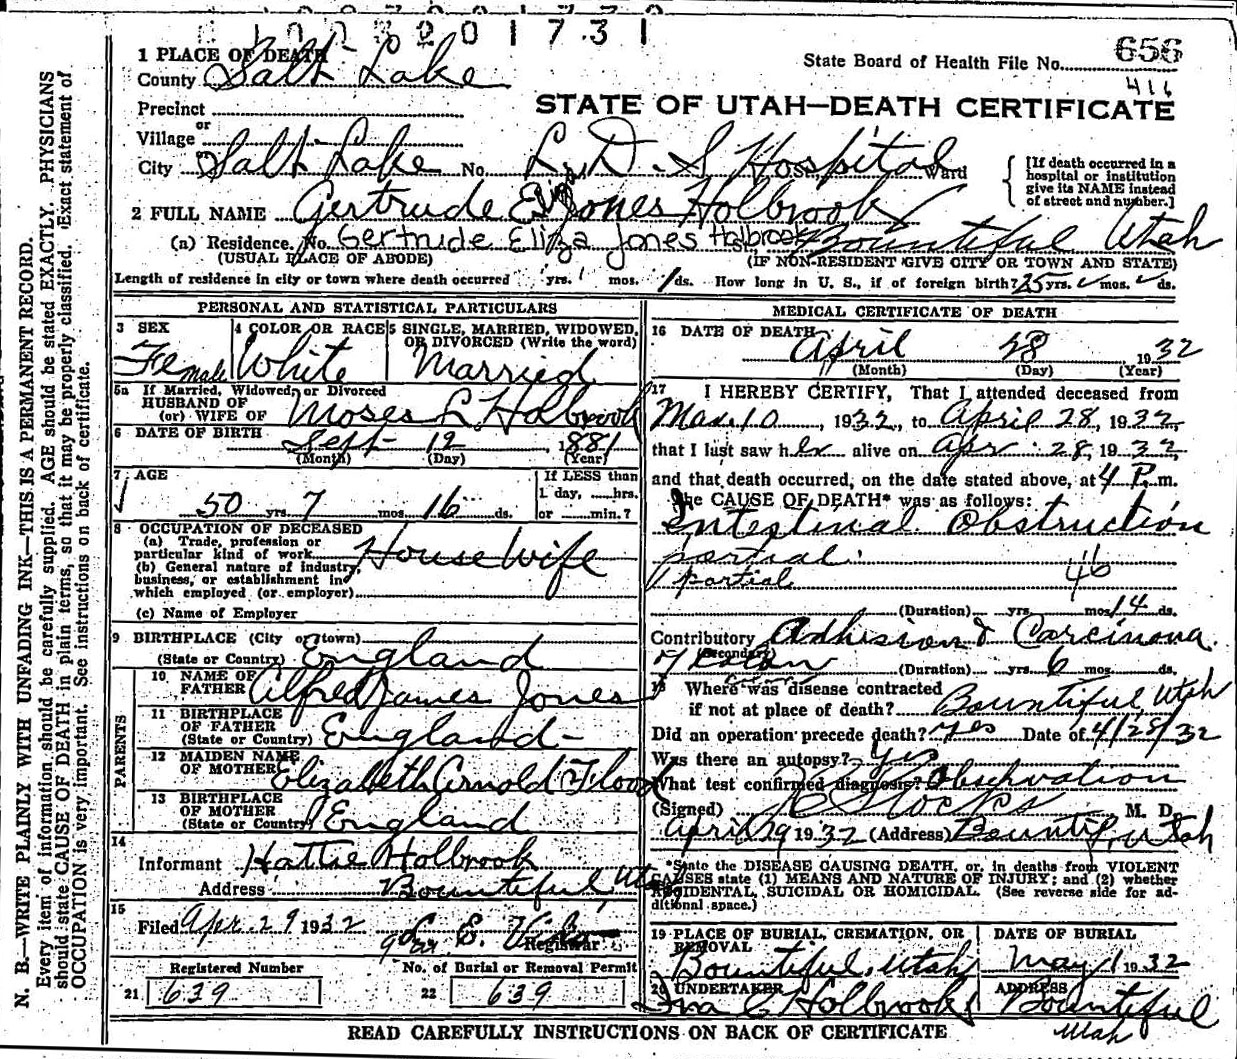 1003201731
State Board of Health File No. 656
416
1 PLACE OF DEATH
County Salt Lake
Precinct
STATE OF UTAH—DEATH CERTIFICATE
or
Village
City Salt Lake No. L. D. S Hospital Ward
[If death occurred in a hospital or institution give its NAME instead of street and number.]
2 FULL NAME Gertrude Eliza Jones Holbrook
(a) Residence. No. Gertrude Eliza Jones Holbrook Bountiful Utah
(USUAL PLACE OF ABODE) (IF NON-RESIDENT GIVE CITY OR TOWN AND STATE)
Length of residence in city or town where death occurred yrs. mos. 1 ds. How long in U. S., if of foreign birth? 25 yrs. mos. ds.
PERSONAL AND STATISTICAL PARTICULARS
3 SEX 4 COLOR OR RACE 5 SINGLE, MARRIED, WIDOWED, OR DIVORCED (Write the word)
Female White Married
5a If Married, Widowed, or Divorced
HUSBAND OF
(or) WIFE OF Moses L. Holbrook
6 DATE OF BIRTH Sept 12, 1881
(Month) (Day) (Year)
7 AGE If LESS than
1 day, hrs.
50 yrs. 7 mos. 16 ds. or min.?
8 OCCUPATION OF DECEASED
(a) Trade, profession or
particular kind of work House Wife
(b) General nature of industry,
business, or establishment in
which employed (or employer)
(c) Name of Employer
9 BIRTHPLACE (City or town)
(State or Country) England
PARENTS
10 NAME OF FATHER Alfred James Jones
11 BIRTHPLACE OF FATHER
(State or Country) England
12 MAIDEN NAME OF MOTHER Elizabeth Arnold Flood
13 BIRTHPLACE OF MOTHER
(State or Country) England
14
Informant Hattie Holbrook
Address Bountiful, Utah
15
Filed Apr. 29 1932
Registrar
Registered Number No. of Burial or Removal Permit
21 639 22 639
MEDICAL CERTIFICATE OF DEATH
16 DATE OF DEATH April 28 1932
(Month) (Day) (Year)
17 I HEREBY CERTIFY, That I attended deceased from
Mar. 10, 1932, to April 28, 1932,
that I last saw her alive on Apr. 28, 1932
and that death occurred, on the date stated above, at 4 P. m.
The CAUSE OF DEATH* was as follows:
Intestinal Obstruction
partial
partial 46
(Duration) yrs. mos. 14 ds.
Contributory Adhesions & Carcinoma
(Secondary)
of Colon (Duration) yrs. 6 mos. ds.
18 Where was disease contracted
if not at place of death? Bountiful, Utah
Did an operation precede death? Yes Date of 4/28/32
Was there an autopsy? Yes
What test confirmed diagnosis? Observation
(Signed) Stocks M. D.
April 29 1932 (Address) Bountiful, Utah
*State the DISEASE CAUSING DEATH, or, in deaths from VIOLENT
CAUSES state (1) MEANS AND NATURE OF INJURY; and (2) whether
ACCIDENTAL, SUICIDAL OR HOMICIDAL. (See reverse side for ad-
ditional space.)
19 PLACE OF BURIAL, CREMATION, OR REMOVAL DATE OF BURIAL
Bountiful, Utah May 1 1932
20 UNDERTAKER ADDRESS
Ira C Holbrook Bountiful
Utah
READ CAREFULLY INSTRUCTIONS ON BACK OF CERTIFICATE
N. B.—WRITE PLAINLY WITH UNFADING INK—THIS IS A PERMANENT RECORD.
Every item of information should be carefully supplied. AGE should be stated EXACTLY. PHYSICIANS
should state CAUSE OF DEATH in plain terms, so that it may be properly classified. Exact statement of
OCCUPATION is very important. See instructions on back of certificate.